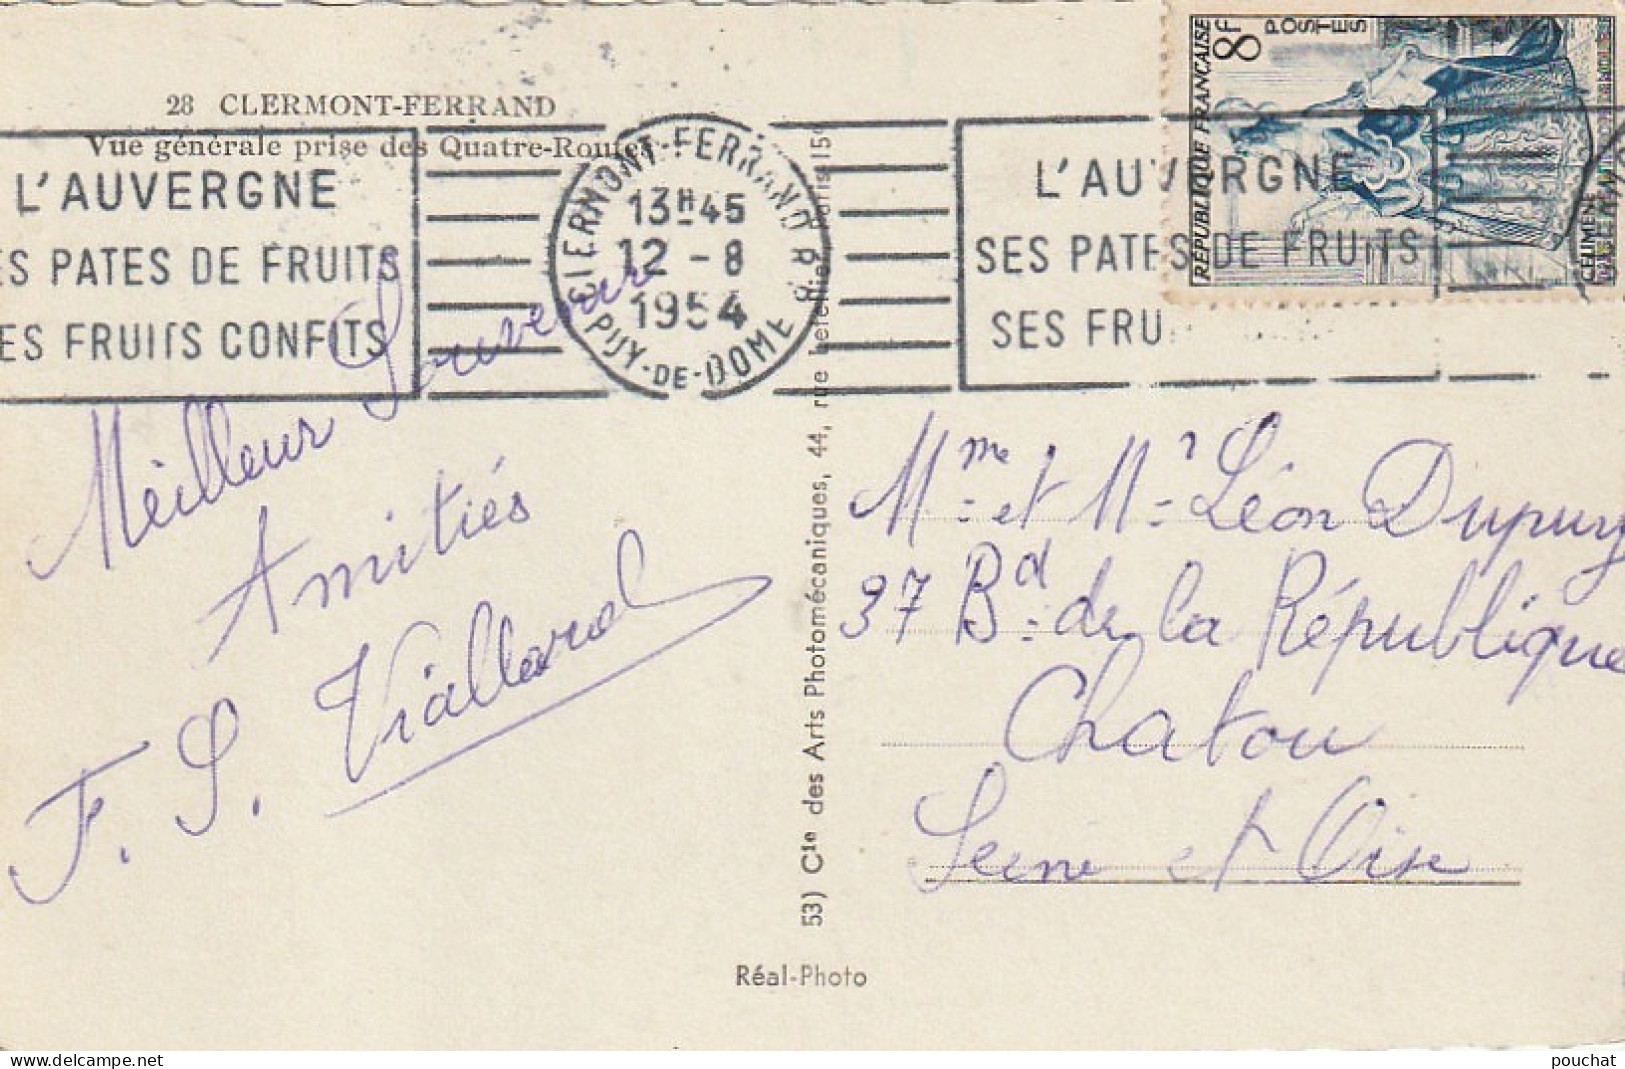 28 CLERMONT-FERRAND
Vue générale prise des Quatre-Routes
L'AUVERGNE
ES PATES DE FRUITS
ES FRUITS CONFITS
CLERMONT-FERRAND R.P.
13H45
12 - 8
1954
PUY-DE-DOME
L'AUVERGNE
SES PATES DE FRUITS
SES FRU
RÉPUBLIQUE FRANÇAISE
8F
POSTES
CÉLIMÈNE
Meilleur Souvenir
Amitiés
F. S. Viallard
53) Cie des Arts Photomécaniques, 44, rue Letellier Paris 15e
Mme et Mr Léon Dupuy
37 Bd de la République
Chatou
Seine et Oise
Réal-Photo
www.delcampe.net
pouchat